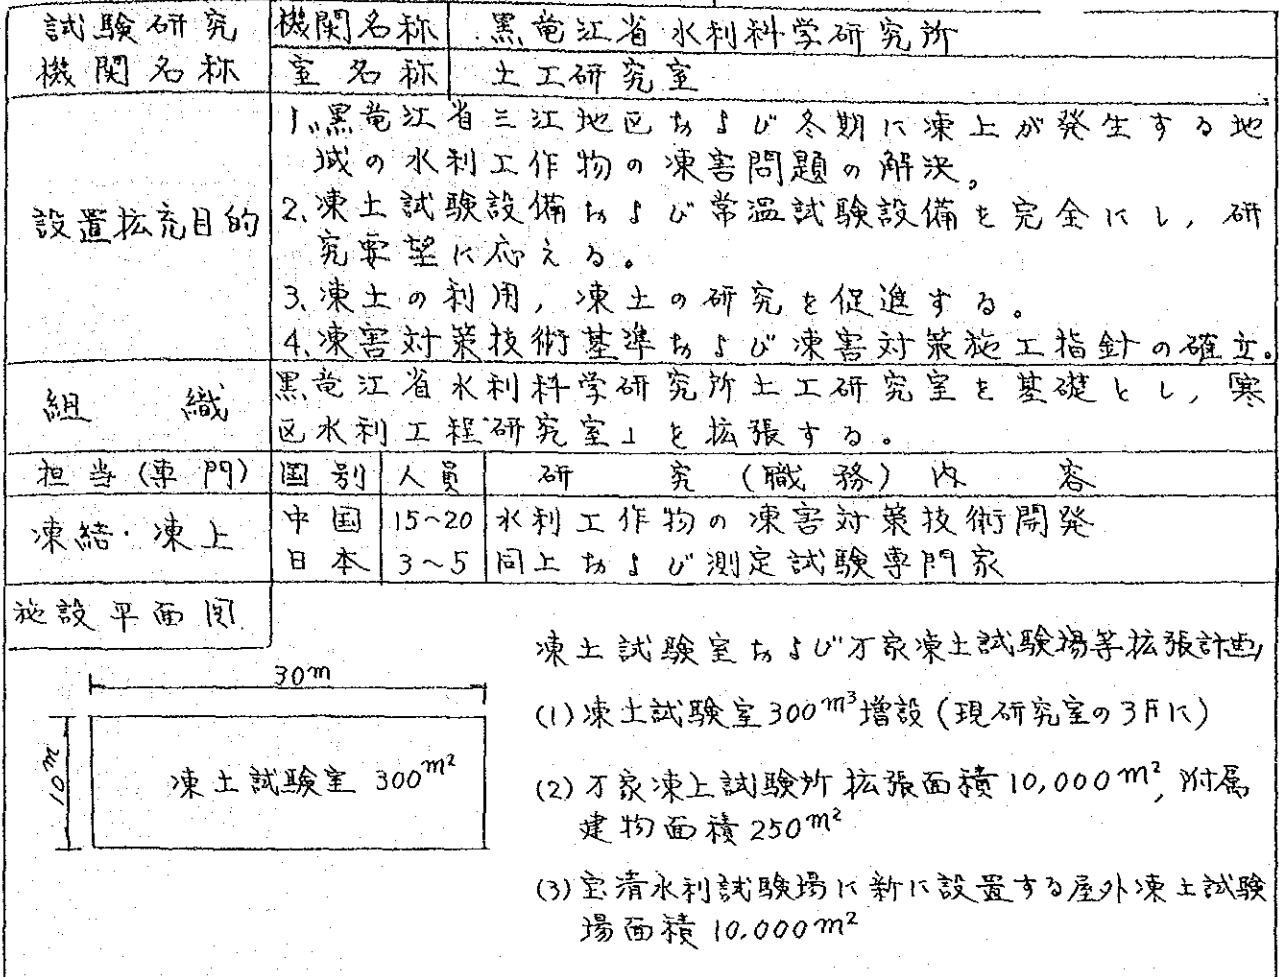 試験研究 機関名称 黒竜江省水利科学研究所
機関名称 室名称 土工研究室
設置拡充目的
1.黒竜江省三江地区および冬期に凍上が発生する地
域の水利工作物の凍害問題の解決。
2.凍土試験設備および常温試験設備を完全にし,研
究要望に応える。
3.凍土の利用,凍土の研究を促進する。
4.凍害対策技術基準および凍害対策施工指針の確立。
組 織
黒竜江省水利科学研究所土工研究室を基礎とし,「寒
区水利工程研究室」を拡張する。
担当(専門) 国別 人員 研 究 (職 務) 内 容
凍結・凍上
中国 15~20 水利工作物の凍害対策技術開発
日本 3~5 同上および測定試験専門家
施設平面図
凍土試験室および万家凍土試験場等拡張計画
30m
10m
凍土試験室 300m²
(1)凍土試験室300m³増設(現研究室の3Fに)
(2)万家凍上試験所拡張面積10,000m²,附属
建物面積250m²
(3)宝清水利試験場に新に設置する屋外凍土試験
場面積10.000m²